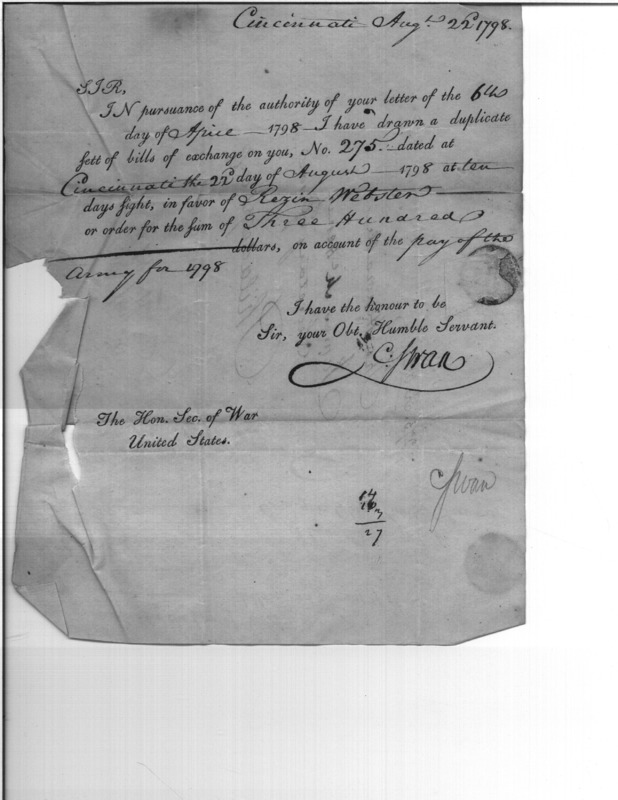 Cincinnati Augt. 22d 1798.
SIR,
IN pursuance of the authority of your letter of the 6th
day of April 1798 I have drawn a duplicate
sett of bills of exchange on you, No. 275. dated at
Cincinnati the 22d day of August 1798 at ten
days sight, in favor of Rezin Webster
or order for the sum of Three Hundred
dollars, on account of the pay of the
Army for 1798
I have the honour to be
Sir, your Obt. Humble Servant.
C. Swan
The Hon. Sec. of War
United States.
Swan
14
27